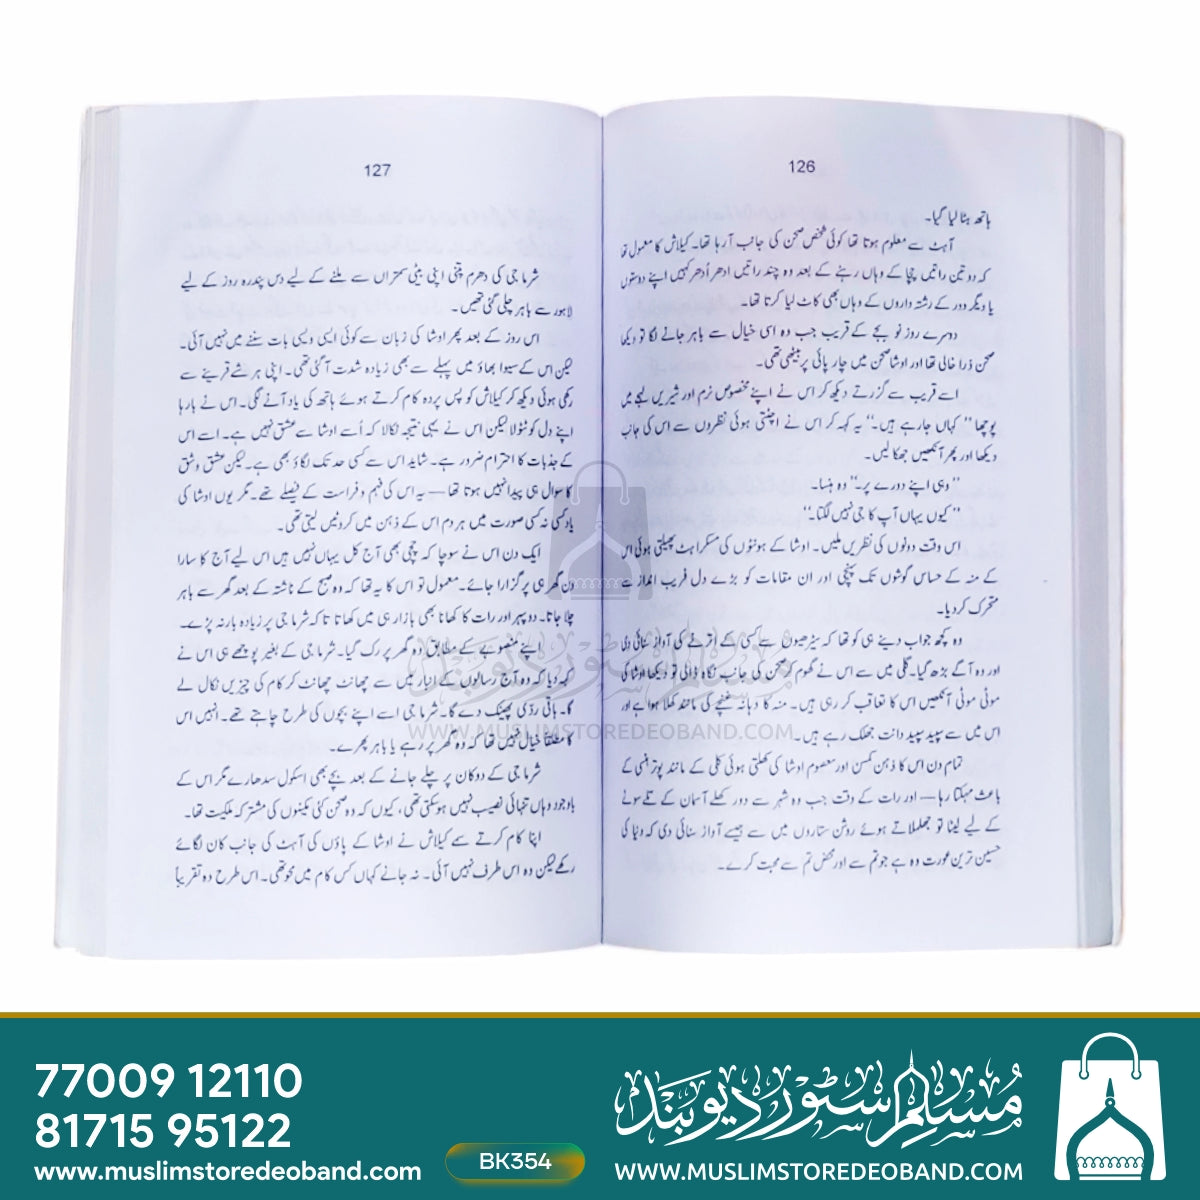 126
ہاتھ ہٹا لیا گیا۔
آہٹ سے معلوم ہوتا تھا کوئی شخص صحن کی جانب آرہا تھا۔ کیلاش کا معمول تھا
کہ دو تین راتیں چچا کے وہاں رہنے کے بعد وہ چند راتیں ادھر اُدھر کہیں اپنے دوستوں
یا دیگر دور کے رشتہ داروں کے وہاں بھی کاٹ لیا کرتا تھا۔
دوسرے روز نو بجے کے قریب جب وہ اسی خیال سے باہر جانے لگا تو دیکھا
صحن ذرا خالی تھا اور اوشا صحن میں چار پائی پر بیٹھی تھی۔
اسے قریب سے گزرتے دیکھ کر اس نے اپنے مخصوص نرم اور شیریں لہجے میں
پوچھا ’’ کہاں جارہے ہیں۔‘‘ یہ کہہ کر اس نے اچٹتی ہوئی نظروں سے اس کی جانب
دیکھا اور پھر آنکھیں جھکا لیں۔
’’ وہی اپنے دورے پر۔‘‘ وہ ہنسا۔
’’ کیوں یہاں آپ کا جی نہیں لگتا۔‘‘
اس وقت دونوں کی نظریں ملیں۔ اوشا کے ہونٹوں کی مسکراہٹ پھیلتی ہوئی اس
کے منہ کے حساس گوشوں تک پہنچی اور ان مقامات کو بڑے دل فریب انداز سے
متحرک کر دیا۔
وہ کچھ جواب دینے ہی کو تھا کہ سیڑھیوں سے کسی کے اترنے کی آواز سنائی دی
اور وہ آگے بڑھ گیا۔ گلی میں سے اس نے گھوم کر صحن کی جانب نگاہ ڈالی تو دیکھا اوشا کی
موٹی موٹی آنکھیں اس کا تعاقب کر رہی ہیں۔ منہ کا دہانہ غنچے کی مانند کھلا ہوا ہے اور
اس میں سے سپید سپید دانت جھلک رہے ہیں۔
تمام دن اس کا ذہن کمسن اور معصوم اوشا کی کھلتی ہوئی کلی کے مانند پوتر ہنسی کے
باعث مہکتا رہا — اور رات کے وقت جب وہ شہر سے دور کھلے آسمان کے تلے سونے
کے لیے لیٹا تو جھلملاتے ہوئے روشن ستاروں میں سے جیسے آواز سنائی دی کہ دنیا کی
حسین ترین عورت وہ ہے جو تم سے اور محض تم سے محبت کرے۔
127
شرما جی کی دھرم پتنی اپنی بیٹی سمتراں سے ملنے کے لیے دس پندرہ روز کے لیے
لاہور سے باہر چلی گئی تھیں۔
اس روز کے بعد پھر اوشا کی زبان سے کوئی ایسی ویسی بات سننے میں نہیں آئی۔
لیکن اس کے سیوا بھاؤ میں پہلے سے بھی زیادہ شدت آگئی تھی۔ اپنی ہر شے قرینے سے
رکھی ہوئی دیکھ کر کیلاش کو پس پردہ کام کرتے ہوئے ہاتھ کی یاد آنے لگی۔ اس نے بارہا
اپنے دل کو ٹٹولا لیکن اس نے یہی نتیجہ نکالا کہ اُسے اوشا سے عشق نہیں ہے۔ اسے اس
کے جذبات کا احترام ضرور ہے۔ شاید اس سے کسی حد تک لگاؤ بھی ہے۔ لیکن عشق وشق
کا سوال ہی پیدا نہیں ہوتا تھا — یہ اس کی فہم و فراست کے فیصلے تھے۔ مگر یوں اوشا کی
یاد کسی نہ کسی صورت میں ہر دم اس کے ذہن میں کروٹیں لیتی تھی۔
ایک دن اس نے سوچا کہ چچی بھی آج کل یہاں نہیں ہیں اس لیے آج کا سارا
دن گھر ہی پر گزارا جائے۔ معمول تو اس کا یہ تھا کہ وہ صبح کے ناشتہ کے بعد گھر سے باہر
چلا جاتا۔ دوپہر اور رات کا کھانا بھی بازار ہی میں کھاتا تاکہ شرما جی پر زیادہ بار نہ پڑے۔
اپنے منصوبے کے مطابق وہ گھر پر رک گیا۔ شرما جی کے بغیر پوچھے ہی اس نے
کہہ دیا کہ وہ آج رسالوں کے انبار میں سے چھانٹ چھانٹ کر کام کی چیزیں نکال لے
گا۔ باقی ردّی پھینک دے گا۔ شرما جی اسے اپنے بچوں کی طرح چاہتے تھے۔ انہیں اس
کا مطلقاً خیال نہیں تھا کہ وہ گھر پر رہے یا باہر پھرے۔
شرما جی کے دوکان پر چلے جانے کے بعد بچے بھی اسکول سدھارے مگر اس کے
باوجود وہاں تنہائی نصیب نہیں ہوسکتی تھی، کیوں کہ وہ صحن کئی مکینوں کی مشترکہ ملکیت تھا۔
اپنا کام کرتے سمے کیلاش نے اوشا کے پاؤں کی آہٹ کی جانب کان لگائے
رکھے لیکن وہ اس طرف نہیں آئی۔ نہ جانے کہاں کس کام میں محو تھی۔ اس طرح وہ تقریباً
مسلم سٹور دیوبند
WWW.MUSLIMSTOREDEOBAND.COM
77009 12110
81715 95122
www.muslimstoredeoband.com
BK354
مسلم سٹور دیوبند
WWW.MUSLIMSTOREDEOBAND.COM